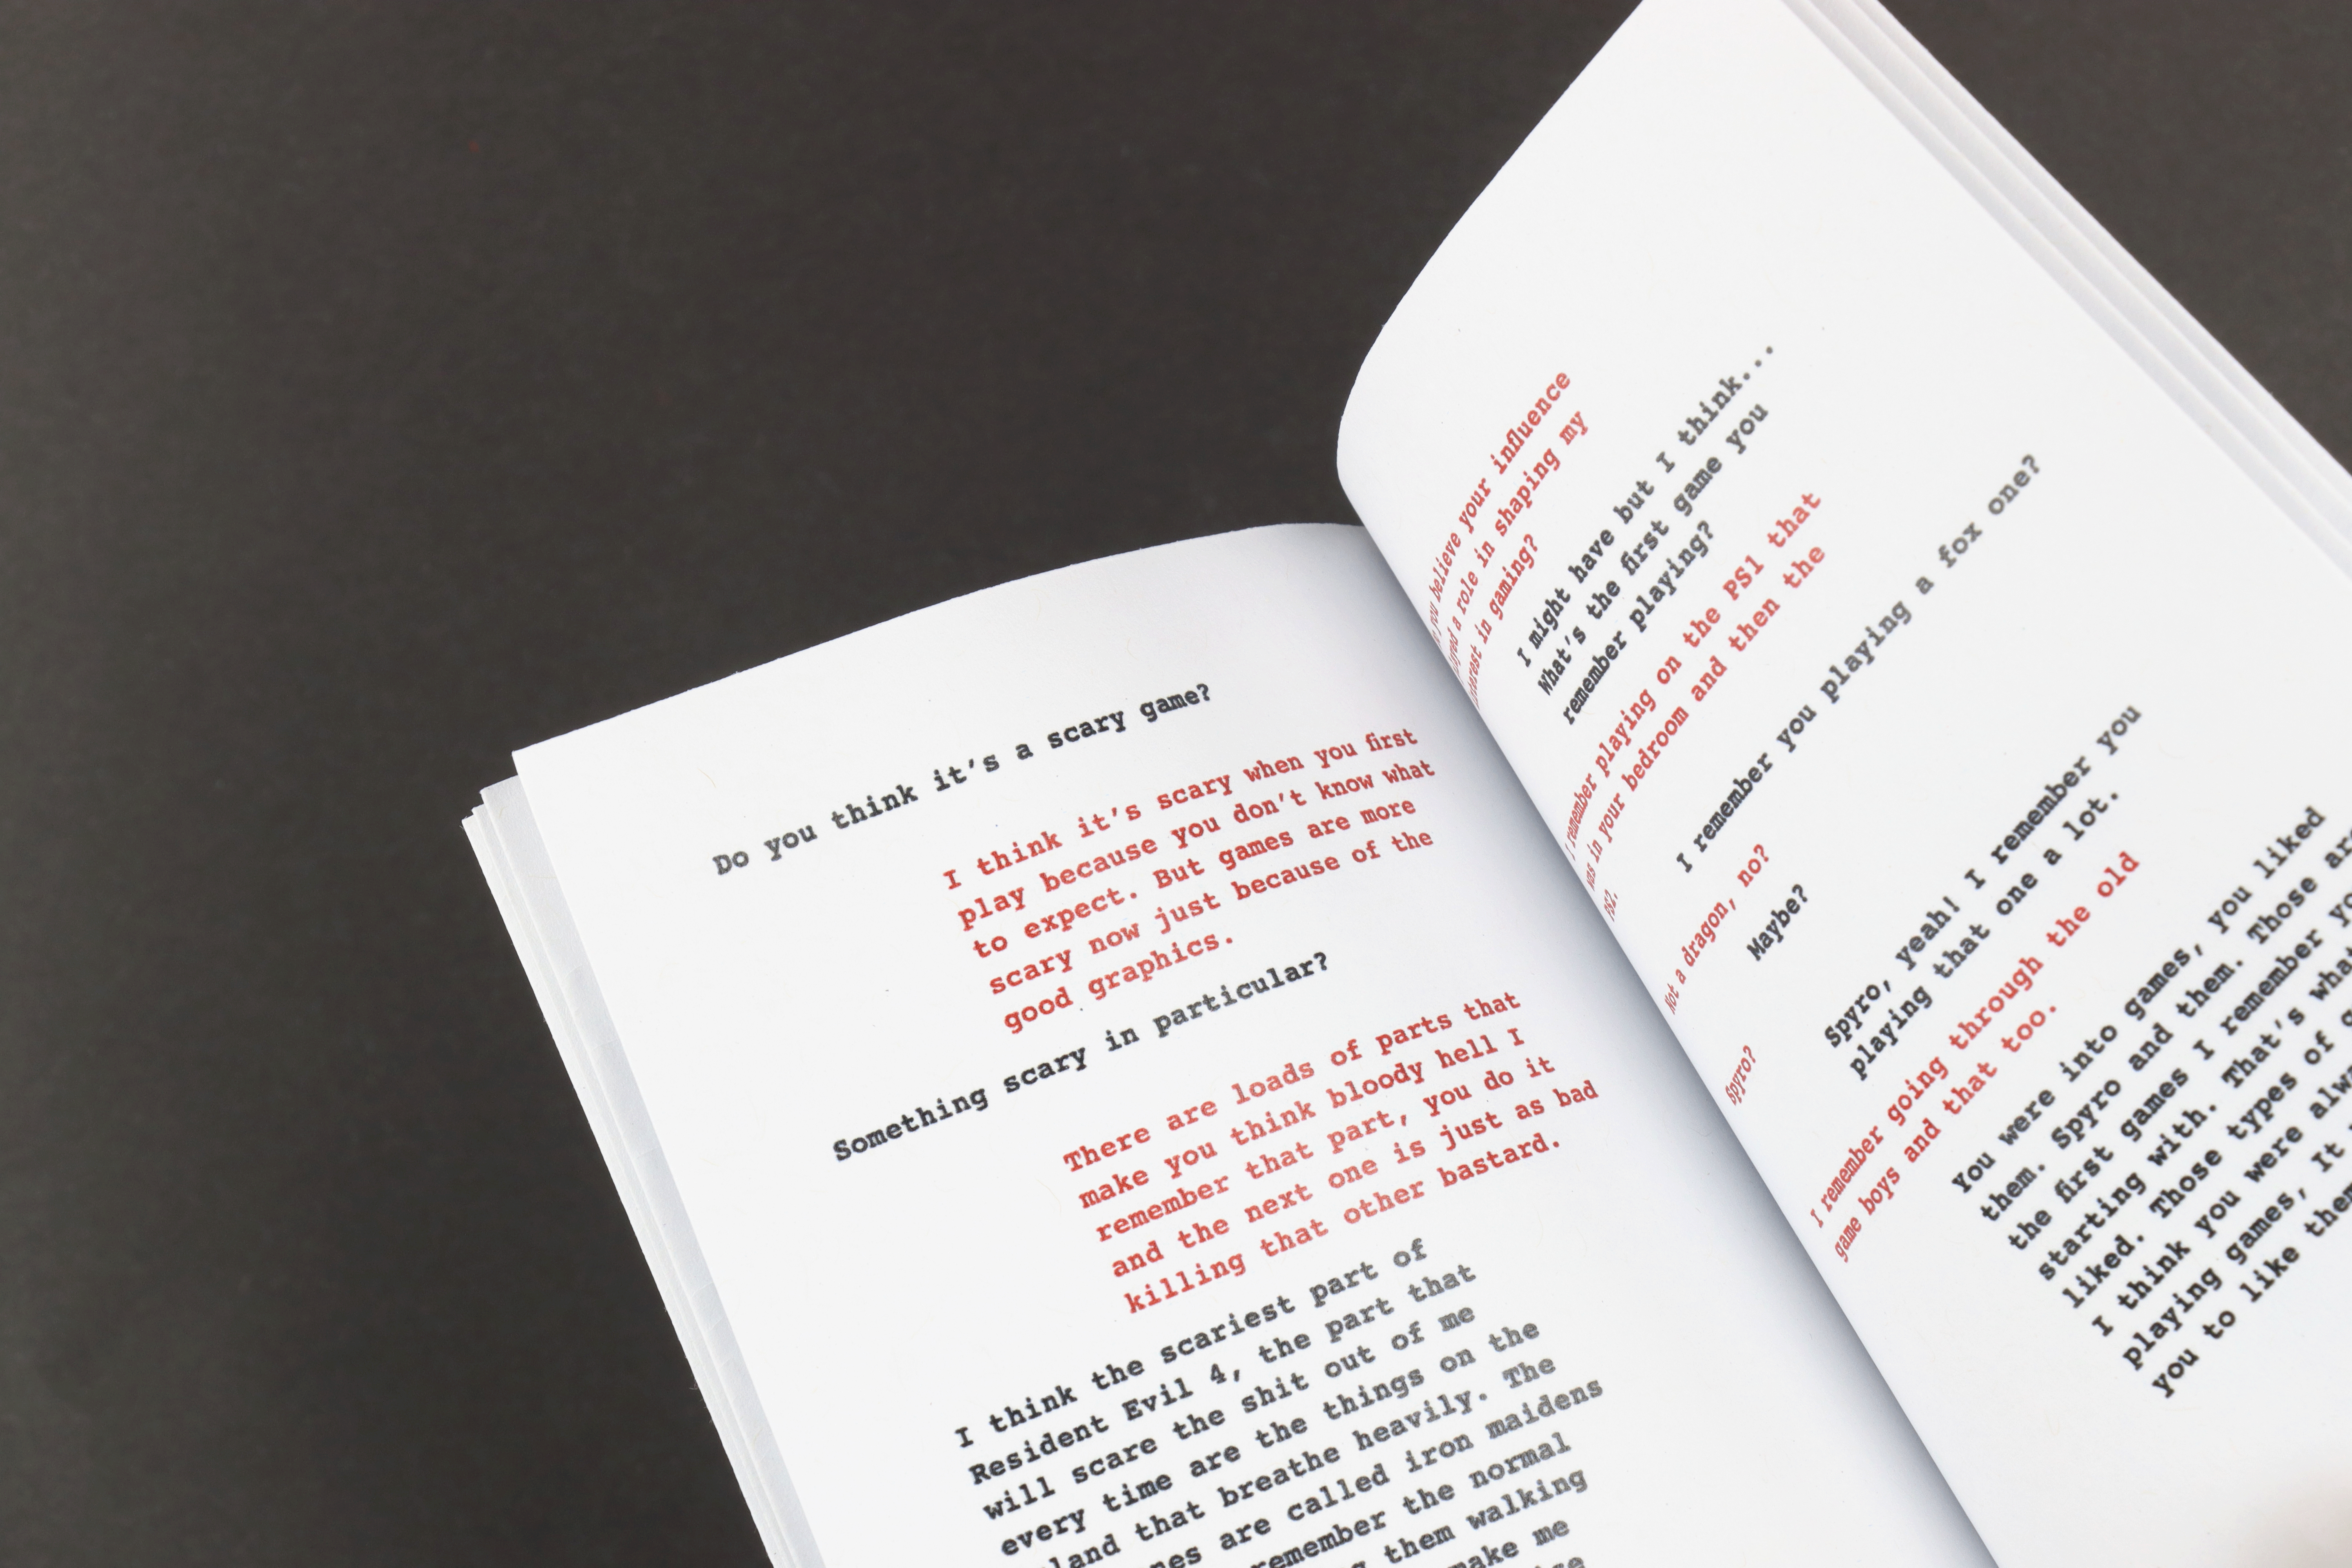 Do you think it's a scary game?
I think it's scary when you first
play because you don't know what
to expect. But games are more
scary now just because of the
good graphics.
Something scary in particular?
There are loads of parts that
make you think bloody hell I
remember that part, you do it
and the next one is just as bad
killing that other bastard.
I think the scariest part of
Resident Evil 4, the part that
will scare the shit out of me
every time are the things on the
that breathe heavily. The
are called iron maidens
remember the normal
them walking
make me
you believe your influence
a role in shaping my
in gaming?
I might have but I think...
What's the first game you
remember playing?
I remember playing on the PS1 that
was in your bedroom and then the
PS2.
I remember you playing a fox one?
Not a dragon, no?
Maybe?
Spyro?
Spyro, yeah! I remember you
playing that one a lot.
I remember going through the old
game boys and that too.
You were into games, you liked
them. Spyro and them. Those
the first games I remember
starting with. That's
liked. Those types of
I think you were
playing games, It
you to like